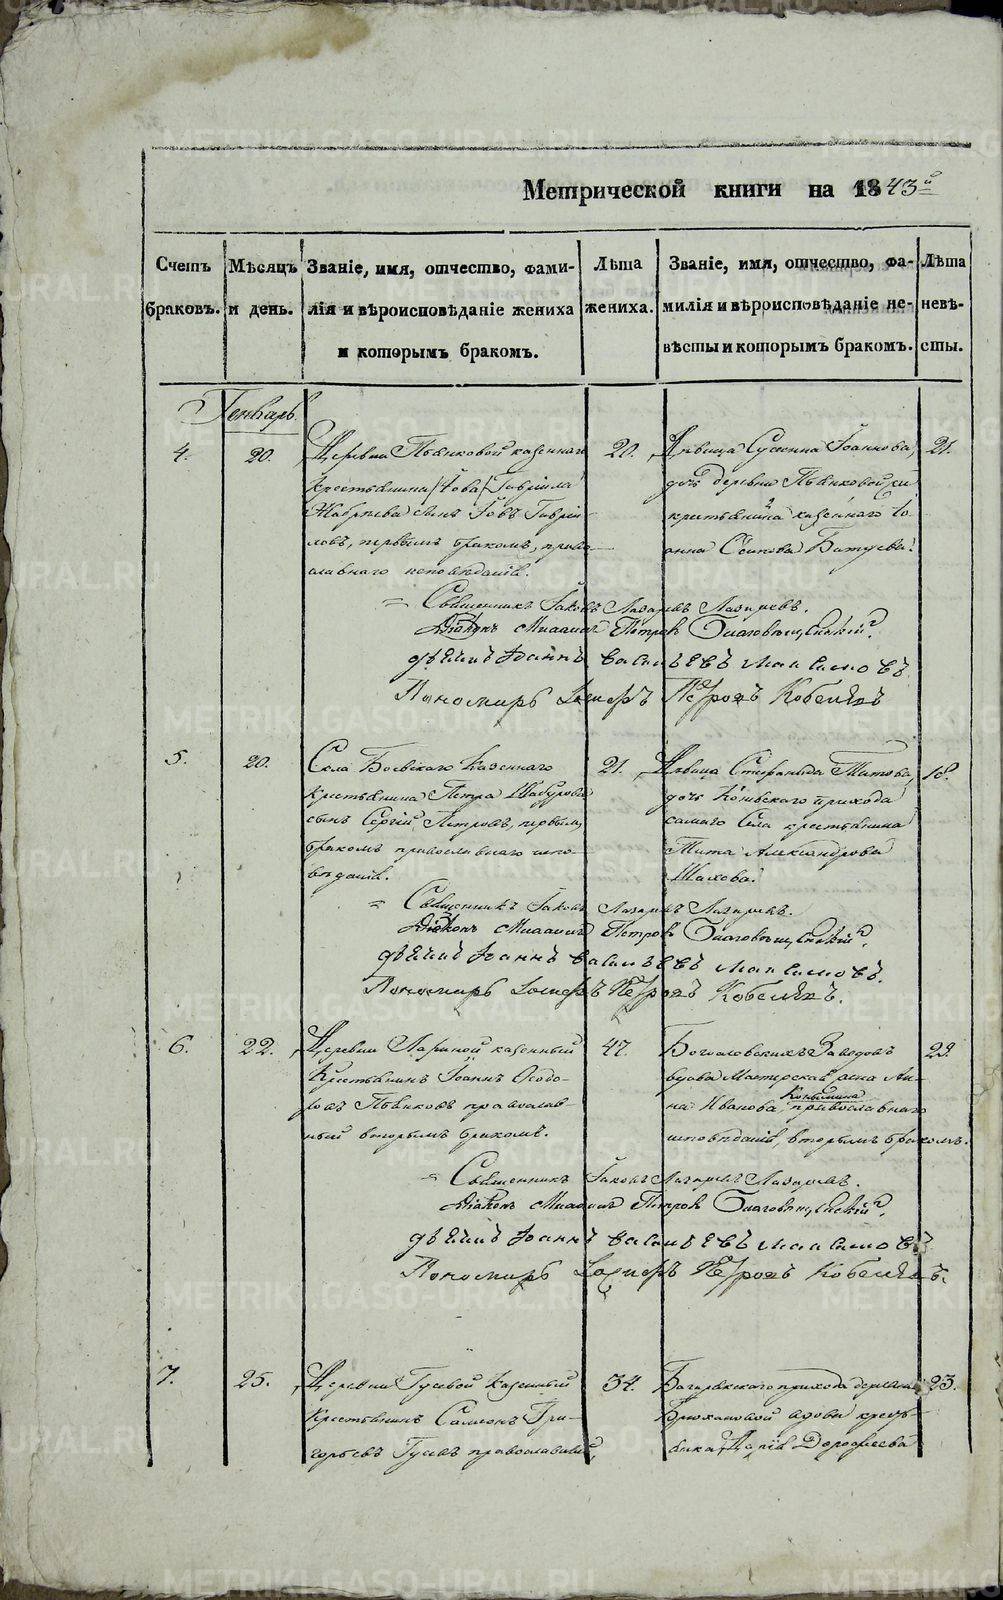 Метрической книги на 1843й
Счетъ браковъ.
Мѣсяцъ и день.
Званіе, имя, отчество, фамилія и вѣроисповѣданіе жениха и которымъ бракомъ.
Лѣта жениха.
Званіе, имя, отчество, фамилія и вѣроисповѣданіе невѣсты и которымъ бракомъ.
Лѣта невѣсты.
Генварь
4.
20.
Деревни Пьянковой казеннаго
крестьянина
сынъ Іовъ Гаврі-
ловъ, первымъ бракомъ, право-
славнаго исповѣданія.
20.
Дѣвица Сусанна Іоаннова,
дочь деревни Пьянковой
крестьянина казеннаго Іо-
анна Осипова
21.
Священникъ Іаковъ Лазаревъ Лазаревъ.
Діаконъ Петровъ Благовѣщенскій.
Дьячекъ Іоаннъ Васильевъ Максимовъ
Пономарь Іосифъ Петровъ Кобелевъ
5.
20.
Села Боевскаго казеннаго
крестьянина Петра Шабурова
сынъ Сергій Петровъ, первымъ
бракомъ православнаго испо-
вѣданія.
21.
Дѣвица Стефанида Титова,
дочь прихода
самаго села крестьянина
Тита Александрова
Шахова.
18.
Священникъ Іаковъ Лазаревъ Лазаревъ.
Діаконъ Петровъ Благовѣщенскій.
Дьячекъ Іоаннъ Васильевъ Максимовъ.
Пономарь Іосифъ Петровъ Кобелевъ.
6.
22.
Деревни Лариной казенный
крестьянинъ Іоаннъ Ѳеодо-
ровъ Пьянковъ православ-
ный вторымъ бракомъ.
47.
Богословскихъ Заводовъ
вдова Мастерская жена Ан-
на Иванова Коньшина православнаго
исповѣданія, вторымъ бракомъ.
29.
Священникъ Іаковъ Лазаревъ Лазаревъ.
Діаконъ Петровъ Благовѣщенскій.
Дьячекъ Іоаннъ Васильевъ Максимовъ
Пономарь Іосифъ Петровъ Кобелевъ.
7.
25.
Деревни Гусевой казенный
крестьянинъ Самсонъ Гри-
горьевъ Гусевъ православный,
34.
Багарякскаго прихода деревни
Брюхановой вдова кресть-
янка Дарія Дорофеева
23.
METRIKI.GASO-URAL.RU